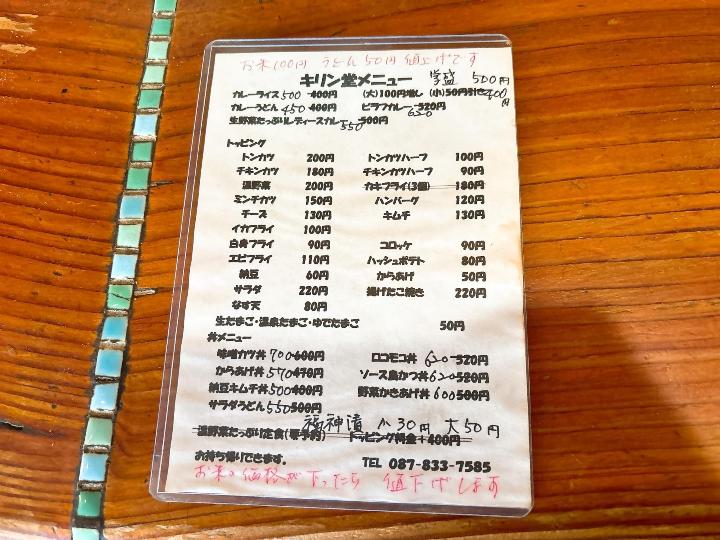 お米100円 うどん50円 値上げです
キリン堂メニュー 学盛 500円
カレーライス500 400円 (大)100円増し (小)50円引き400円
カレーうどん450 400円 ピラフカレー520円 620
生野菜たっぷりレディースカレー500円 550
トッピング
トンカツ 200円 トンカツハーフ 100円
チキンカツ 180円 チキンカツハーフ 90円
温野菜 200円 カキフライ(3個) 180円
ミンチカツ 150円 ハンバーグ 120円
チーズ 130円 キムチ 130円
イカフライ 100円
白身フライ 90円 コロッケ 90円
エビフライ 110円 ハッシュポテト 80円
納豆 60円 からあげ 50円
サラダ 220円 揚げたこ焼き 220円
なす天 80円
生たまご・温泉たまご・ゆでたまご 50円
丼メニュー
味噌カツ丼700 600円 ロコモコ丼 620 520円
からあげ丼570 470円 ソース鳥かつ丼620 520円
納豆キムチ丼500 400円 野菜かきあげ丼600 500円
サラダうどん550 500円
福神漬 小30円 大50円
温野菜たっぷり定食(要予約) トッピング料金+400円
お持ち帰りできます。 TEL 087-833-7585
お米の価格が下ったら 値下げします